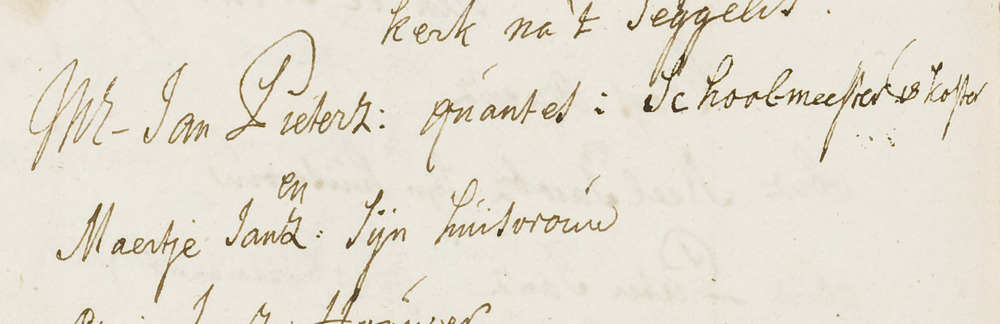 kerk na't Seggelis.
Mr- Jan Pieterz: quantes: Schoolmeester is koster
en
Maertje Janz: Sijn huisvrouw